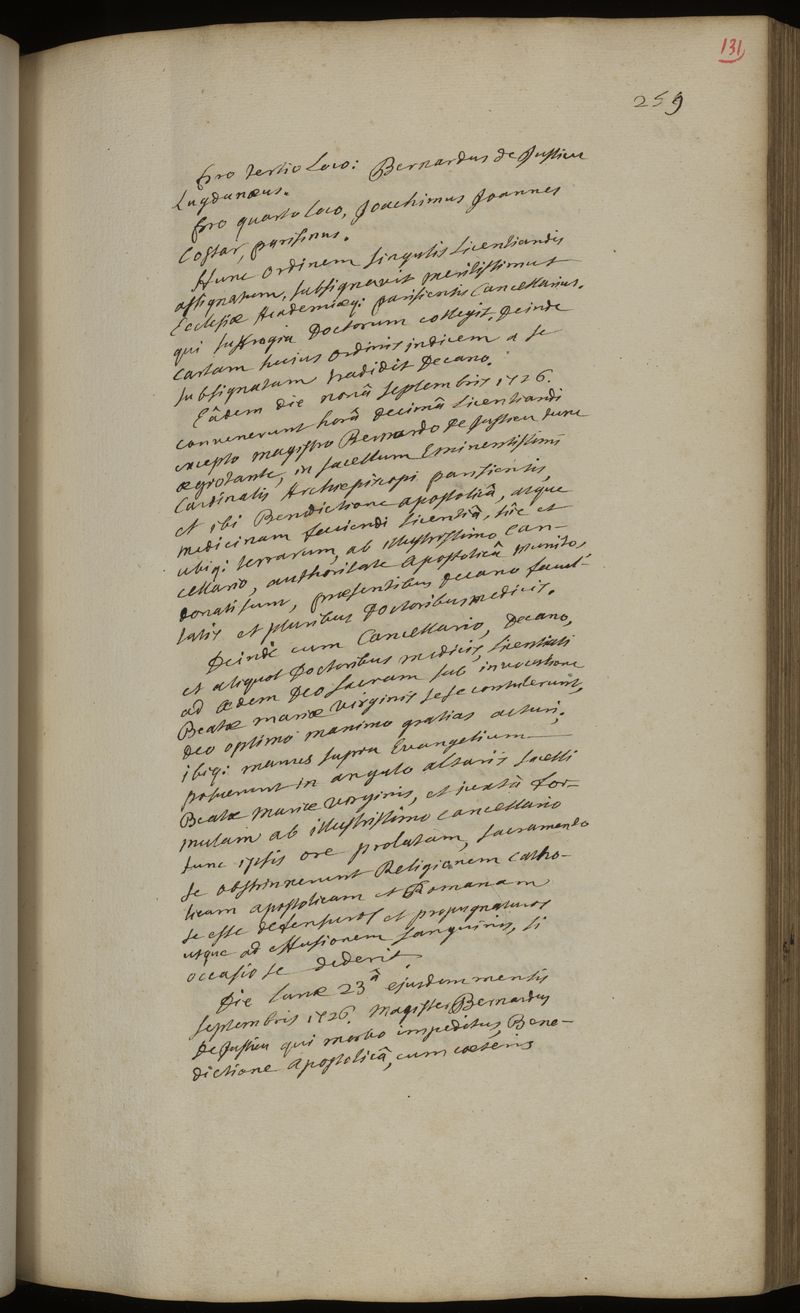 131
259
Pro tertio loco: Bernardus de Jussieu
Lugdunæus.
Pro quarto loco, Joachimus Joannes
Costar, parisinus.
Hunc ordinem singulis Licentiandis
assignatum, subsignavit meritissimus
Ecclesiæ Academiæq; parisiensis Cancellarius.
qui suffragia Doctorum collegit, Deinde
cartam hujus ordinis indicem a se
subsignatam tradidit Decano.
Eâdem die nonâ septembris 1726.
convenerunt horâ decimâ licentiandi
excepto magistro Bernardo De Jussieu tunc
ægrotante, in sacellum Eminentissimi
Cardinalis Archiepiscopi parisiensis,
et ibi Benedictione apostolicâ, atque
medicinam faciendi licentiâ, hîc et
ubiq; terrarum, ab illustrissimo Can-
cellario, authoritate apostolicâ munito,
donati sunt, præsentibus decano facul-
tatis et pluribus Doctoribus medicis.
Deinde cum Cancellario, Decano,
et aliquot Doctoribus medicis, licentiati
ad ædem Deo sacram sub invocatione
Beatæ mariæ virginis sese contulerunt,
deo optimo maximo gratias acturi;
ibiq; manus supra Evangelium
posuerunt in angulo altaris sacelli
Beatæ Mariæ virginis, et juxtà for-
mulam ab illustrissimo cancellario
tunc ipsis ore prolatam, sacramento
se obstrinxerunt Religionem catho-
licam apostolicam et Romanam
se esse defensuros et propugnaturos
usque ad effusionem sanguinis, si
occasio se dederit.
Die lunæ 23â ejusdem mensis
septembris 1726. Magister Bernardus
De Jussieu qui morbo impeditus, Bene-
dictione apostolicâ, cum cæteris